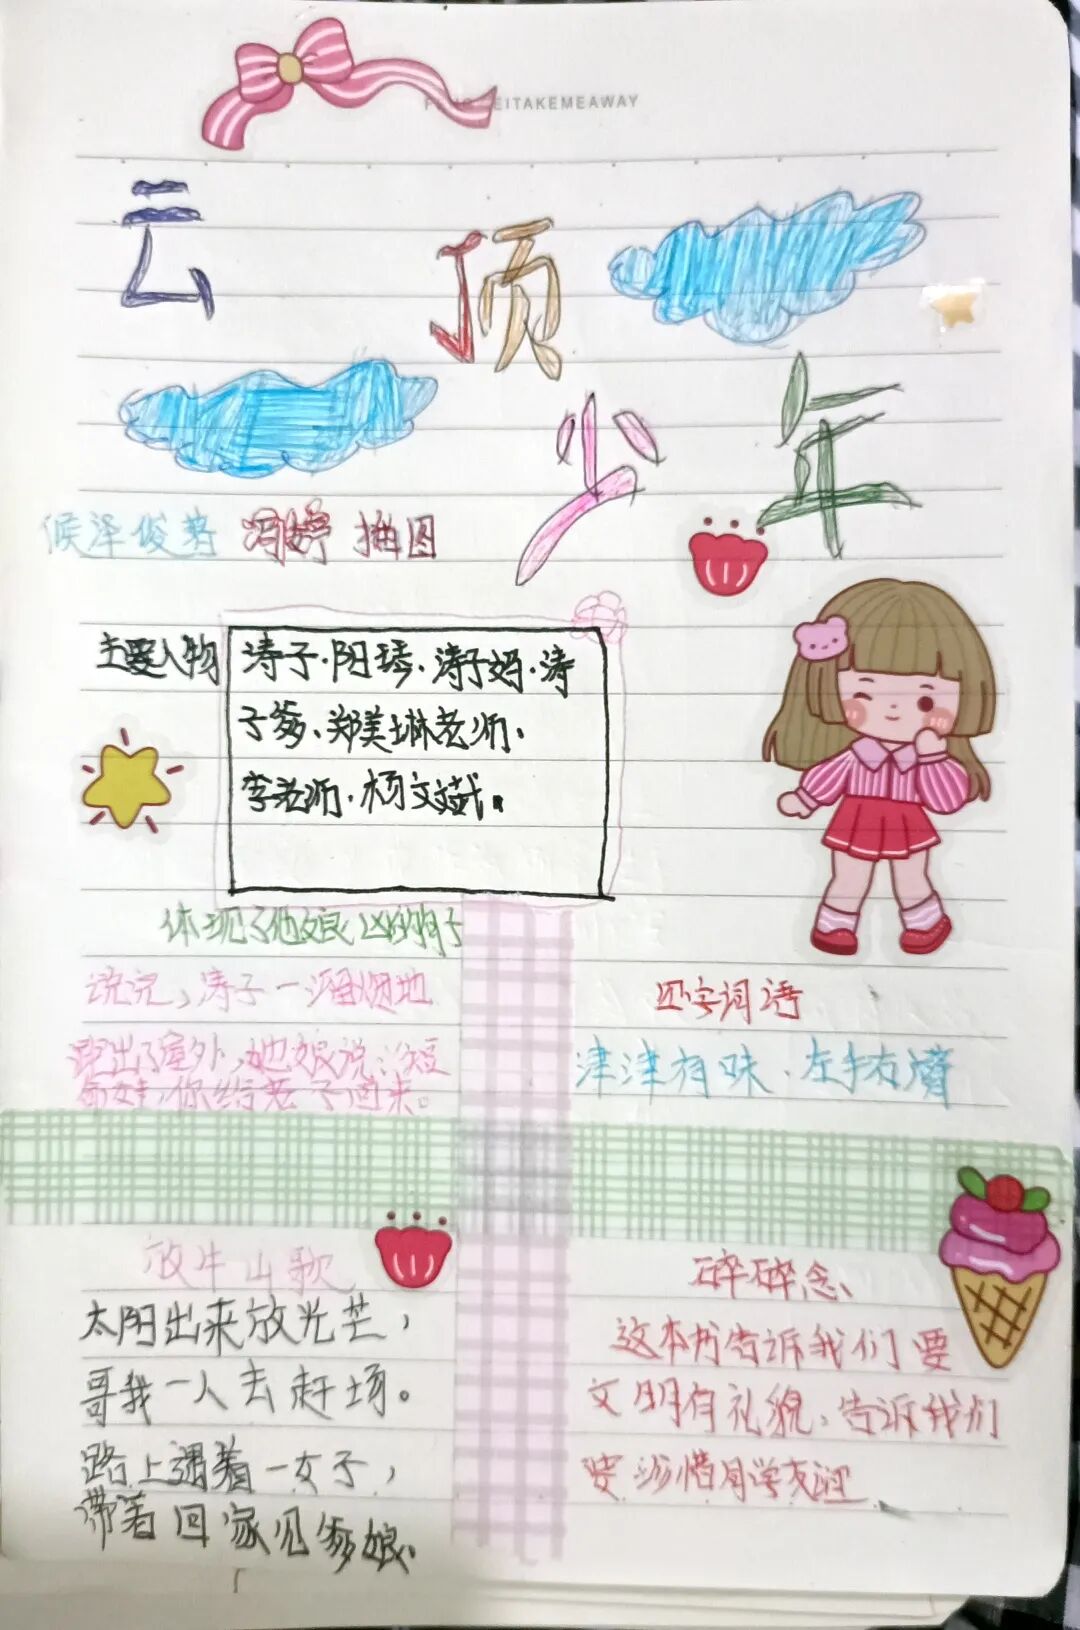 EITAKEMEAWAY
云顶
少年
候泽俊著 冯婷 插图
主要人物
涛子·阳琴·涛子妈·涛
子爹、郑美琳老师、
李老师·杨文斌。
体现了他娘凶的句子
说完,涛子一溜烟地
跑出了屋外,她娘说:短
命娃,你给老子回来。
四字词语
津津有味、左手右臂
放牛山歌
太阳出来放光芒,
哥我一人去赶场。
路上遇着一女子,
带着回家见爹娘、
碎碎念、
这本书告诉我们要
文明有礼貌、告诉我们
要珍惜同学友谊